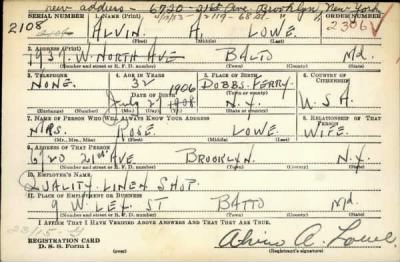 new address - 6720 - 21st Ave Brooklyn, New York
SERIAL NUMBER 1. NAME (Print) ORDER NUMBER
2105 ALVIN A. LOWE 2306
(First) (Middle) (Last)
2. ADDRESS (Print)
1937 W. NORTH AVE BALTO Md.
(Number and street or R. F. D. number) (Town) (County) (State)
3. TELEPHONE 4. AGE IN YEARS 5. PLACE OF BIRTH 6. COUNTRY OF CITIZENSHIP
NONE. 34 DOBBS-FERRY
DATE OF BIRTH 1906 (Town or county)
July 27 1908 N.Y. U.S.A.
(Exchange) (Number) (Mo.) (Day) (Yr.) (State or country)
7. NAME OF PERSON WHO WILL ALWAYS KNOW YOUR ADDRESS 8. RELATIONSHIP OF THAT PERSON
MRS. ROSE LOWE WIFE.
(Mr., Mrs., Miss) (First) (Middle) (Last)
9. ADDRESS OF THAT PERSON
6720 21st AVE BROOKLYN. N.Y.
(Number and street or R. F. D. number) (Town) (County) (State)
10. EMPLOYER'S NAME
QUALITY LINEN SHOP.
11. PLACE OF EMPLOYMENT OR BUSINESS
9 W. LEX. ST BALTO Md.
(Number and street or R. F. D. number) (Town) (County) (State)
I AFFIRM THAT I HAVE VERIFIED ABOVE ANSWERS AND THAT THEY ARE TRUE.
REGISTRATION CARD
D. S. S. Form 1
Alvin A. Lowe
(Registrant's signature)